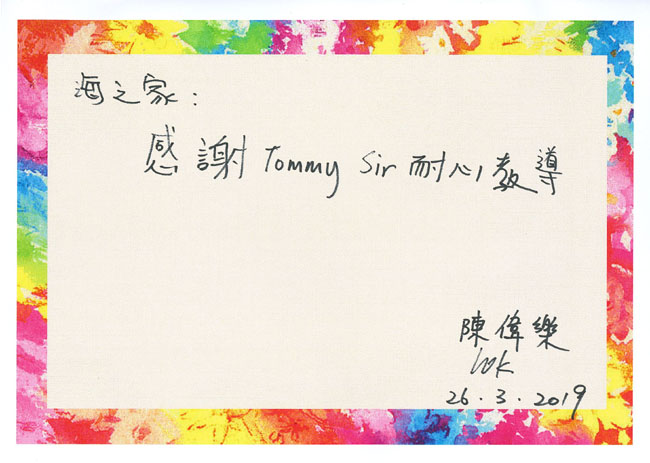 海之家：
感謝 Tommy Sir 耐心教導
陳偉樂
lok
26.3.2019